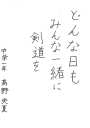 どんな日も
みんな一緒に
剣道を
中学一年 高野 央夏